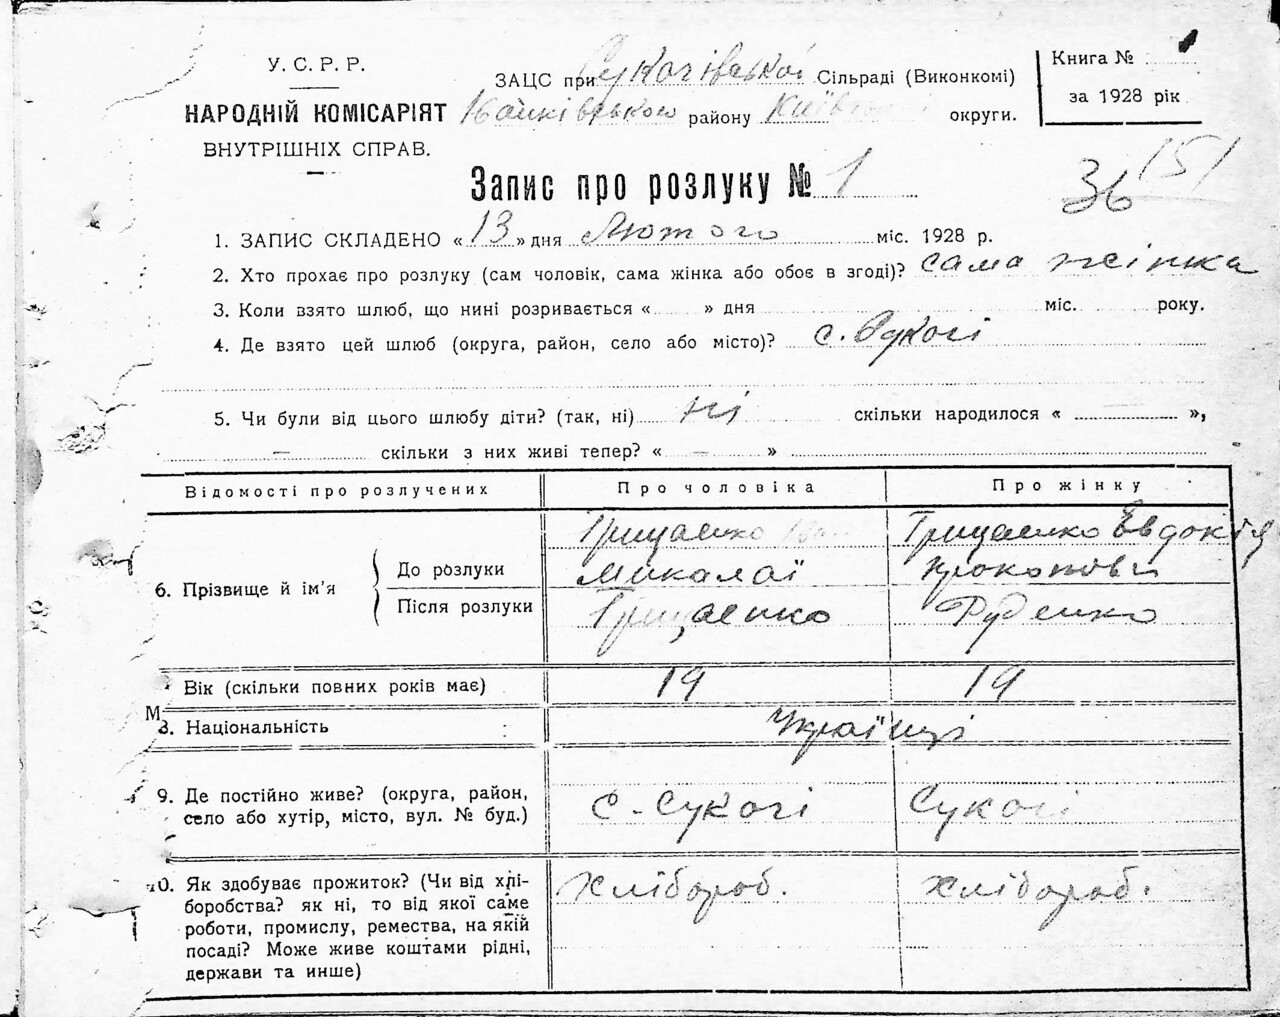 У. С. Р. Р.
НАРОДНІЙ КОМІСАРІЯТ
ВНУТРІШНІХ СПРАВ.
ЗАЦС при Сукачівської Сільраді (Виконкомі)
району Київської округи.
Книга №
за 1928 рік
36 151
Запис про розлуку № 1
1. ЗАПИС СКЛАДЕНО « 13 » дня Лютого міс. 1928 р.
2. Хто прохає про розлуку (сам чоловік, сама жінка або обоє в згоді)? сама жінка
3. Коли взято шлюб, що нині розривається « » дня міс. року.
4. Де взято цей шлюб (округа, район, село або місто)? с. Сукачі
5. Чи були від цього шлюбу діти? (так, ні) ні скільки народилося « — »,
— скільки з них живі тепер? « — »
Відомості про розлучених Про чоловіка Про жінку
6. Прізвище й ім'я
До розлуки Грищенко Миколаї Грищенко Евдокія
Після розлуки Грищенко Руденко
Вік (скільки повних років має) 19 19
М
8. Національність : Українці
9. Де постійно живе? (округа, район,
село або хутір, місто, вул. № буд.) с. Сукачі Сукачі
10. Як здобуває прожиток? (Чи від хлі- Хлібороб. Хлібороб.
боробства? як ні, то від якої саме
роботи, промислу, ремества, на якій
посаді? Може живе коштами рідні,
держави та инше)